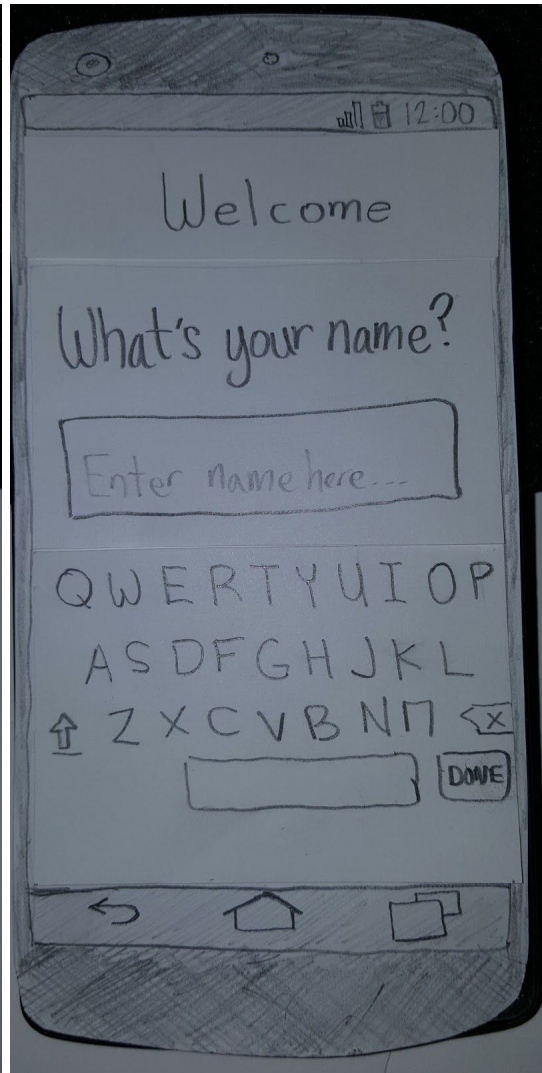 12:00
Welcome
What's your name?
Enter name here...
QWERTYUIOP
ASDFGHJKL
ZXCVBNM
DONE